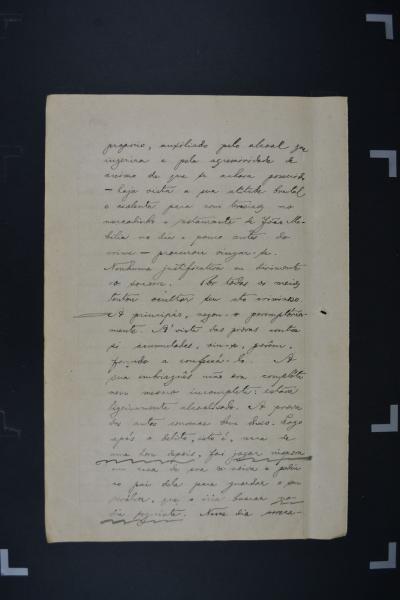 proprio, auxiliado pelo alcool que
ingerira e pela agressividade de
animo de que se achava possuido
— haja vista a sua atitude brutal
e violenta para com
mercadinho e restaurante de João
no dia e pouco antes do
crime — procurou vingar-se.
Nenhuma justificativa ou dirimente
o socorre. Por todos os meios
tentou ocultar seu ato criminoso.
A principio, negou-o peremptoria-
mente. Á vista das provas contra
si acumuladas, viu-se, porém,
forçado a confessá-lo. A
sua embriaguês não era completa
nem mesmo incompleta: estava
ligeiramente alcoolizado. A prova
dos autos convence disso. Logo
após o delito, isto é, cerca de
uma hora depois, foi
em casa de sua e pediu
ao pai dela para guardar o seu
revólver, que o iria buscar no
dia seguinte. Nesse dia